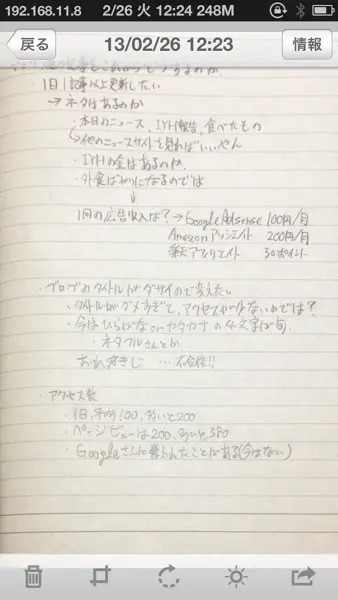 192.168.11.8 2/26 火 12:24 248M
戻る 13/02/26 12:23 情報
・1日1記事以上更新したい
→ネタはあるのか
・本日のニュース、IYH報告、食べたもの
↳他のニュースサイトを見ればいいやん
・IYHの金はあるのか
・外食ばかりになるのでは
↓
1日の広告収入は?→Google Adsense 100円/月
Amazonアソシエイト 200円/月
楽天アフィリエイト 30ポイント
・ブログのタイトルがダサイので考えたい
・タイトルがダメすぎて、アクセスが少ないのでは?
・今はひらがなorカタカナの4文字が旬
・ネタフルさんとか
おれ好きじ …不合格!!
・アクセス数
・1日、平均100、多いと200
・ページビューは200、多いと380
・Googleさんに奪われたことがある(今はない)